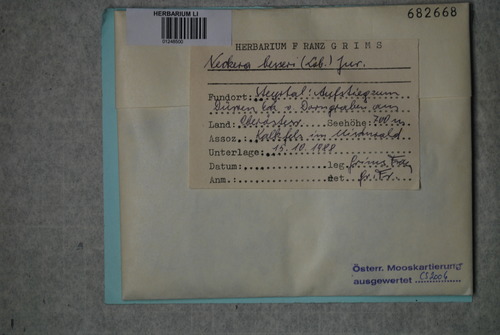 HERBARIUM LI
01248500
682668
HERBARIUM FRANZ GRIMS
Neckera besseri (Lob.) Jur.
Fundort: Steyrtal: Aufstieg zum
Dürren v. Dorngraben aus
Land: Oberösterr. Seehöhe: 700 m
Assoz. Kalkfels in Mischwald
Unterlage: 15.10.1988
Datum: leg. Grims Franz
Anm.: det. Gr. Fr.
Österr. Mooskartierung
ausgewertet CS 2006